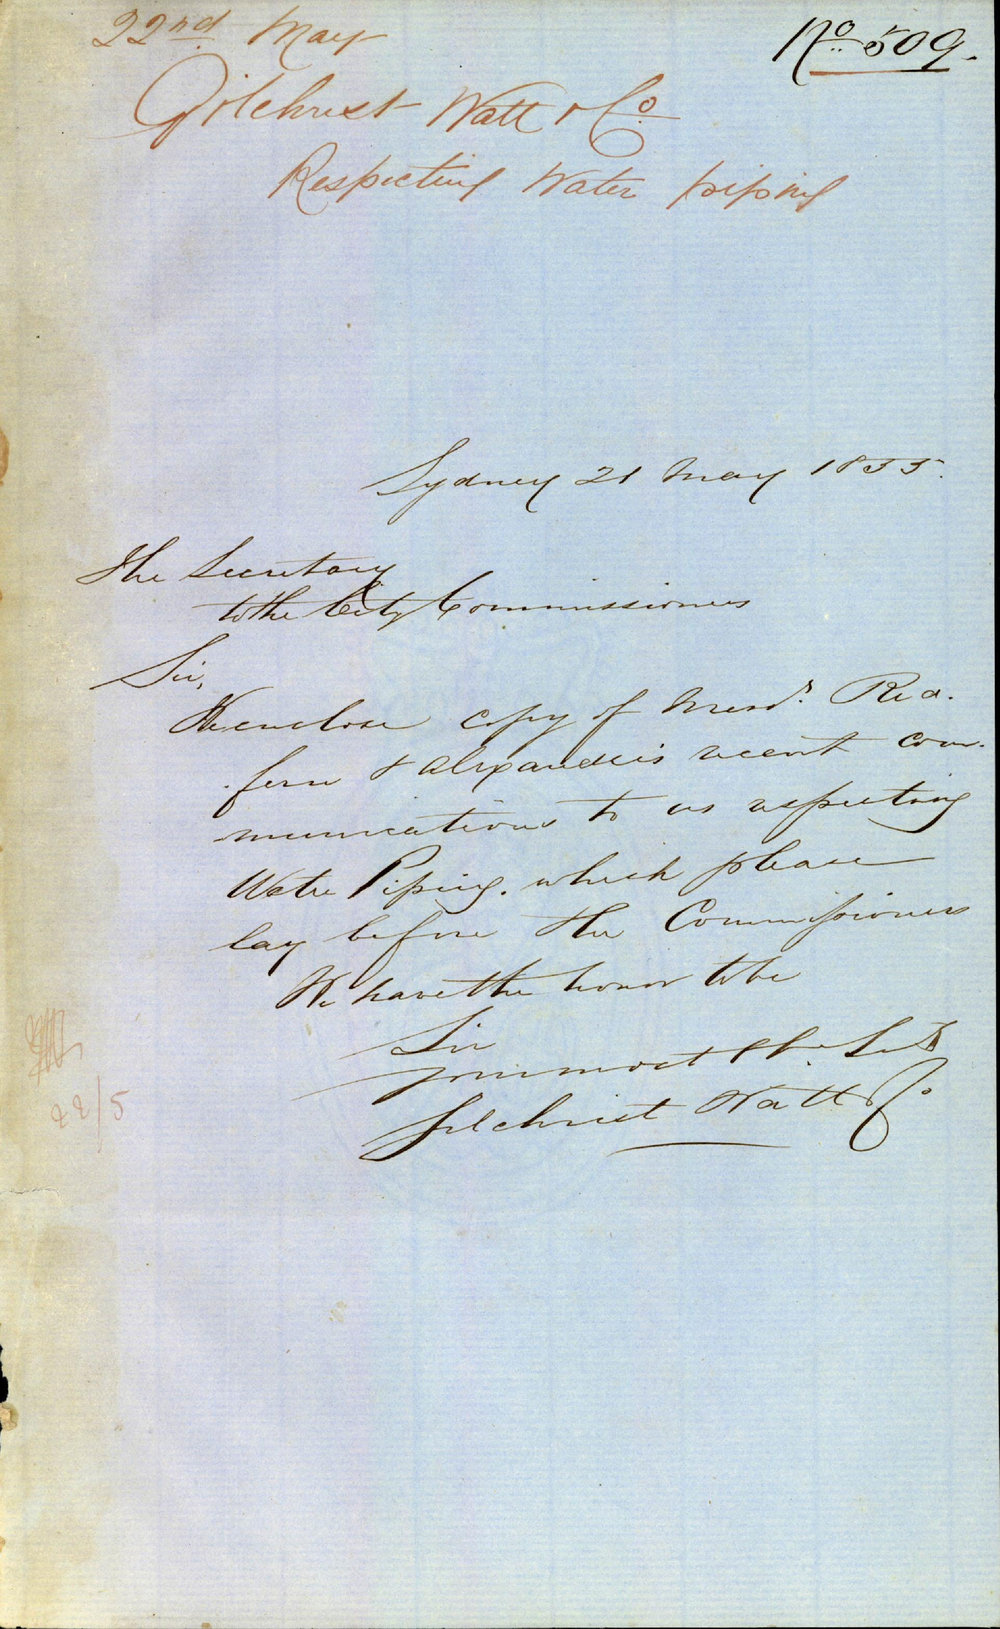 22nd May
No. 509.
Gilchrist Watt & Co.
Respecting Water piping
Sydney 21 May 1855.
The Secretary
to the City Commissioners
Sir,
We enclose copy of Messrs. Red-
fern & Alexander's recent com-
munications to us respecting
Water Piping. which please
lay before the Commissioners
We have the honor to be
Sir
Your most
Gilchrist Watt & Co
22/5